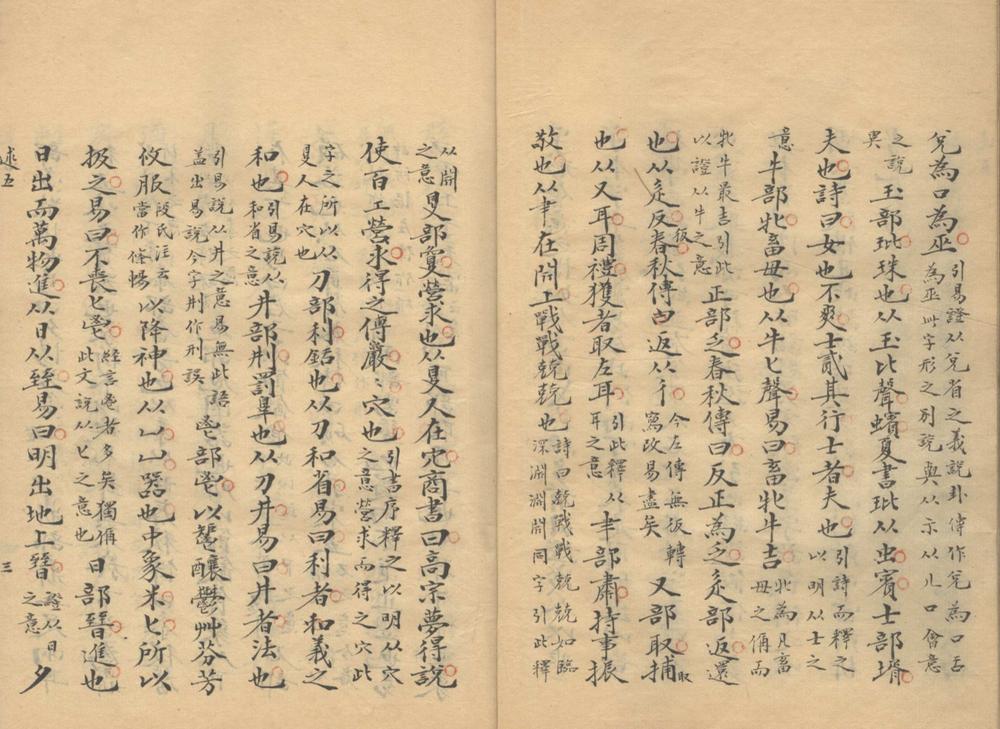 兌為口為巫引易證从兌省之義說卦傳作兌為口舌為巫此字形之別說與从示从儿口會意
之說異玉部玭珠也从玉比聲蠙夏書玭从虫賓士部壻
夫也詩曰女也不爽士貳其行士者夫也引詩而釋之以明从士之
意牛部牝畜母也从牛匕聲易曰畜牝牛吉牝為凡畜母之偁而
牝牛最吉引此以證从牛之意正部乏春秋傳曰反正為乏辵部返還
也从辵反春秋傳曰返从彳今左傳無彶轉寫改易盡矣又部取捕取
也从又耳周禮獲者取左耳引此釋从耳之意聿部肅持事振
敬也从聿在𣶒上戰戰兢兢也詩曰兢戰戰兢兢如臨深淵淵𣶒同字引此釋
从𣶒之意𡕥部敻營求也从𡕥人在穴商書曰高宗夢得說
使百工營求得之傅巖〻穴也引書序釋之以明从穴之意營求而得之穴此
字之所以从𡕥人在穴也刀部利銛也从刀和省易曰利者和義之
和也引易說从和省之意井部㓝罰辠也从刀井易曰井者法也
引易說从井之意易無此語蓋出易說今字㓝作刑誤鬯部鬯以䰯釀鬱艸芬芳
攸服段氏注云當作條暢以降神也从凵凵器也中象米匕所以
扱之易曰不喪匕鬯經言鬯者多矣獨偁此文說从匕之意也日部㬜進也
日出而萬物進从日从臸易曰明出地上㬜證从日之意夕
述五
三